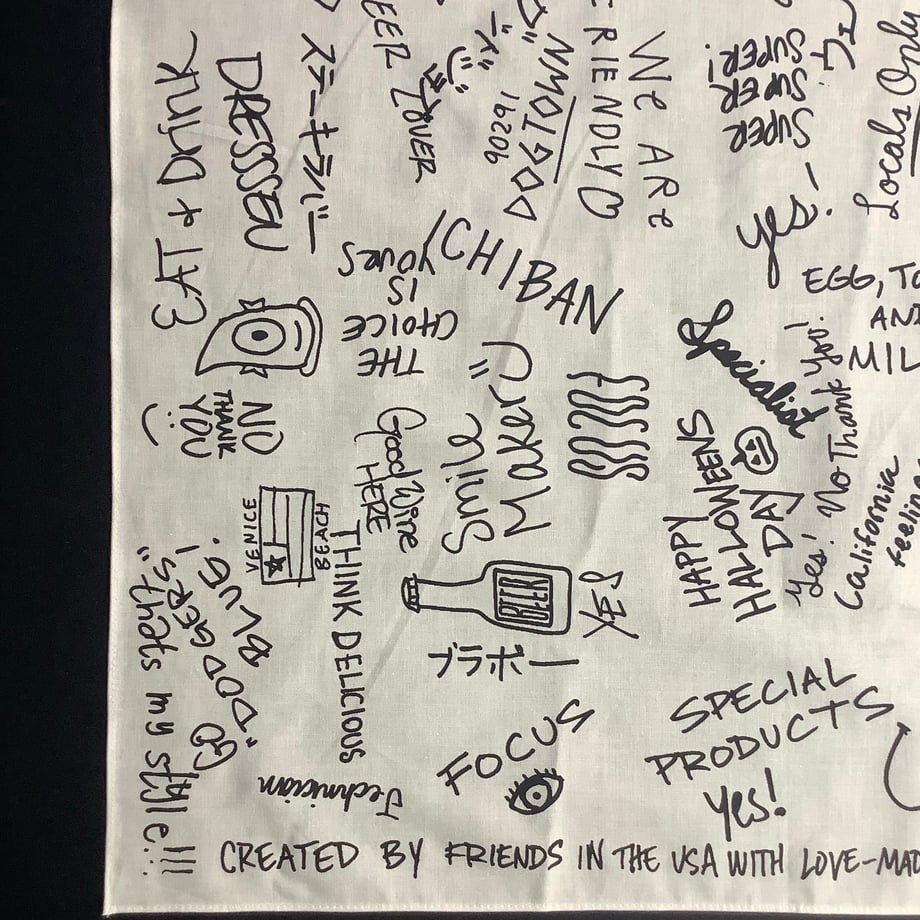 EAT + DRNK
DRESSSEN
ステーキラバー
LOVER
90291
DOGTOWN
WE ARE
SUPER
SUPER
SUPER!
yes!
Locals Only
ICHIBAN
THE
CHOICE
IS
YOURS
EGG,
MIL
Specialist
NO
THANK
YOU
Good Wine
HERE
Smile
Maker
HAPPY
HALLOWEENS
DAY
Yes! No Thank You!
California
feeling
VENICE
BEACH
THINK DELICIOUS
BEER
ブラボー
"thats my style!!!
GO
"DODGER'S
BLUE."
Technician
FOCUS
SPECIAL
PRODUCTS
yes!
CREATED BY FRIENDS IN THE USA WITH LOVE-MAD